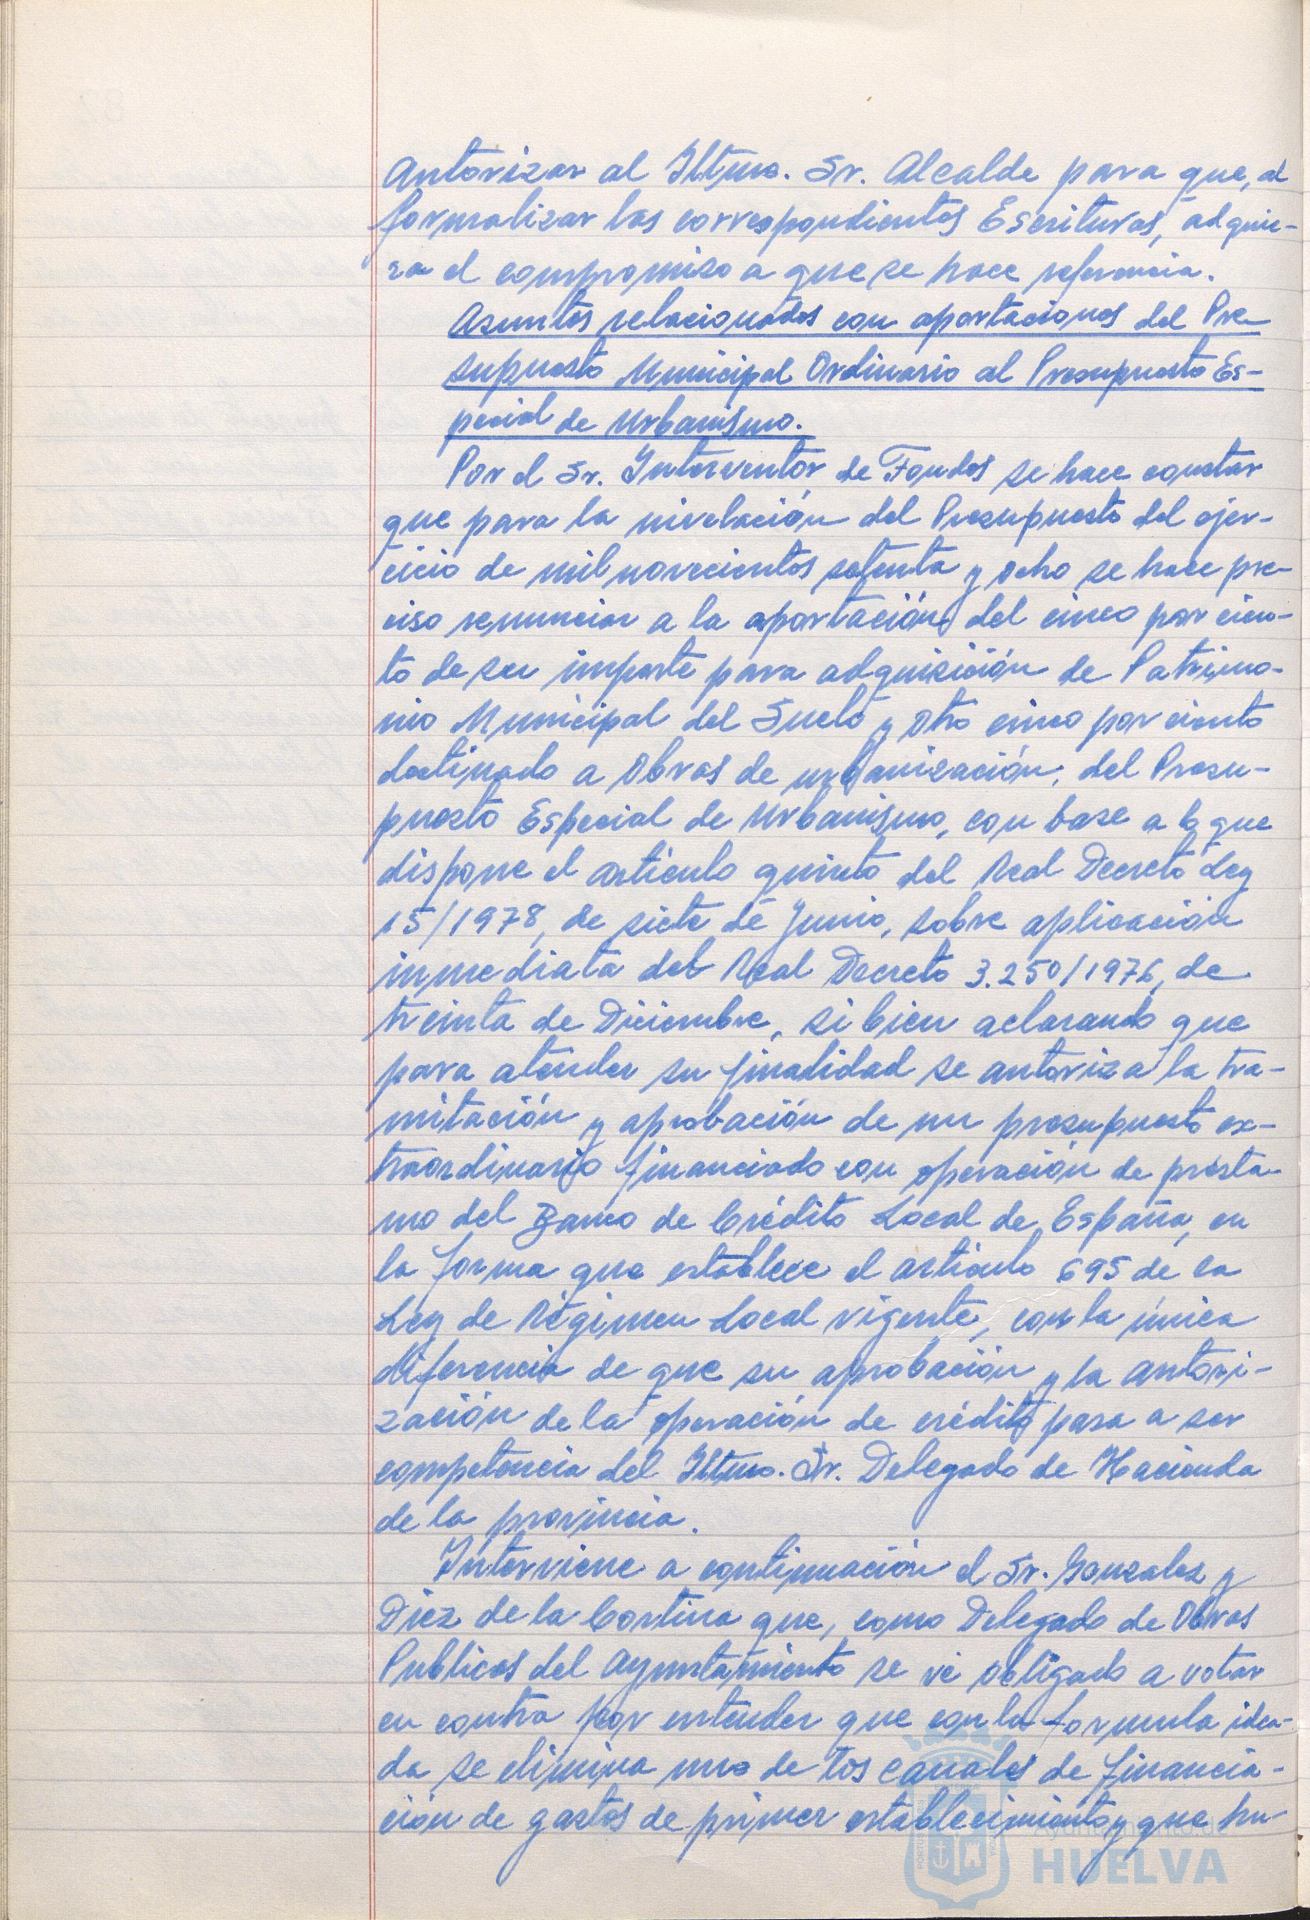 Autorizar al Iltmo. Sr. Alcalde para que, al
formalizar las correspondientes Escrituras, adquie-
ra el compromiso a que se hace referencia.
Asuntos relacionados con aportaciones del Pre
supuesto Municipal Ordinario al Presupuesto Es-
pecial de Urbanismo.
Por el Sr. Interventor de Fondos se hace constar
que para la nivelación del Presupuesto del ejer-
cicio de mil novecientos setenta y ocho se hace pre-
ciso renunciar a la aportación del cinco por cien-
to de su importe para adquisición de Patrimo-
nio Municipal del Suelo y otro cinco por ciento
destinado a Obras de urbanización, del Presu-
puesto Especial de Urbanismo, con base a lo que
dispone el artículo quinto del Real Decreto Ley
15/1978, de siete de Junio, sobre aplicación
inmediata del Real Decreto 3.250/1976, de
treinta de Diciembre, si bien aclarando que
para atender su finalidad se autoriza la tra-
mitación y aprobación de un presupuesto ex-
traordinario financiado con operación de présta-
mo del Banco de Crédito Local de España, en
la forma que establece el artículo 695 de la
Ley de Régimen Local vigente, con la única
diferencia de que su aprobación y la autori-
zación de la operación de crédito pasa a ser
competencia del Iltmo. Sr. Delegado de Hacienda
de la provincia.
Interviene a continuación el Sr. Gonzalez y
Diez de la Cortina que, como Delegado de Obras
Publicas del Ayuntamiento se vé obligado a votar
en contra por entender que con la formula idea-
da se elimina uno de los canales de financia-
ción de gastos de primer establecimiento y que hu-
Ayuntamiento de
HUELVA